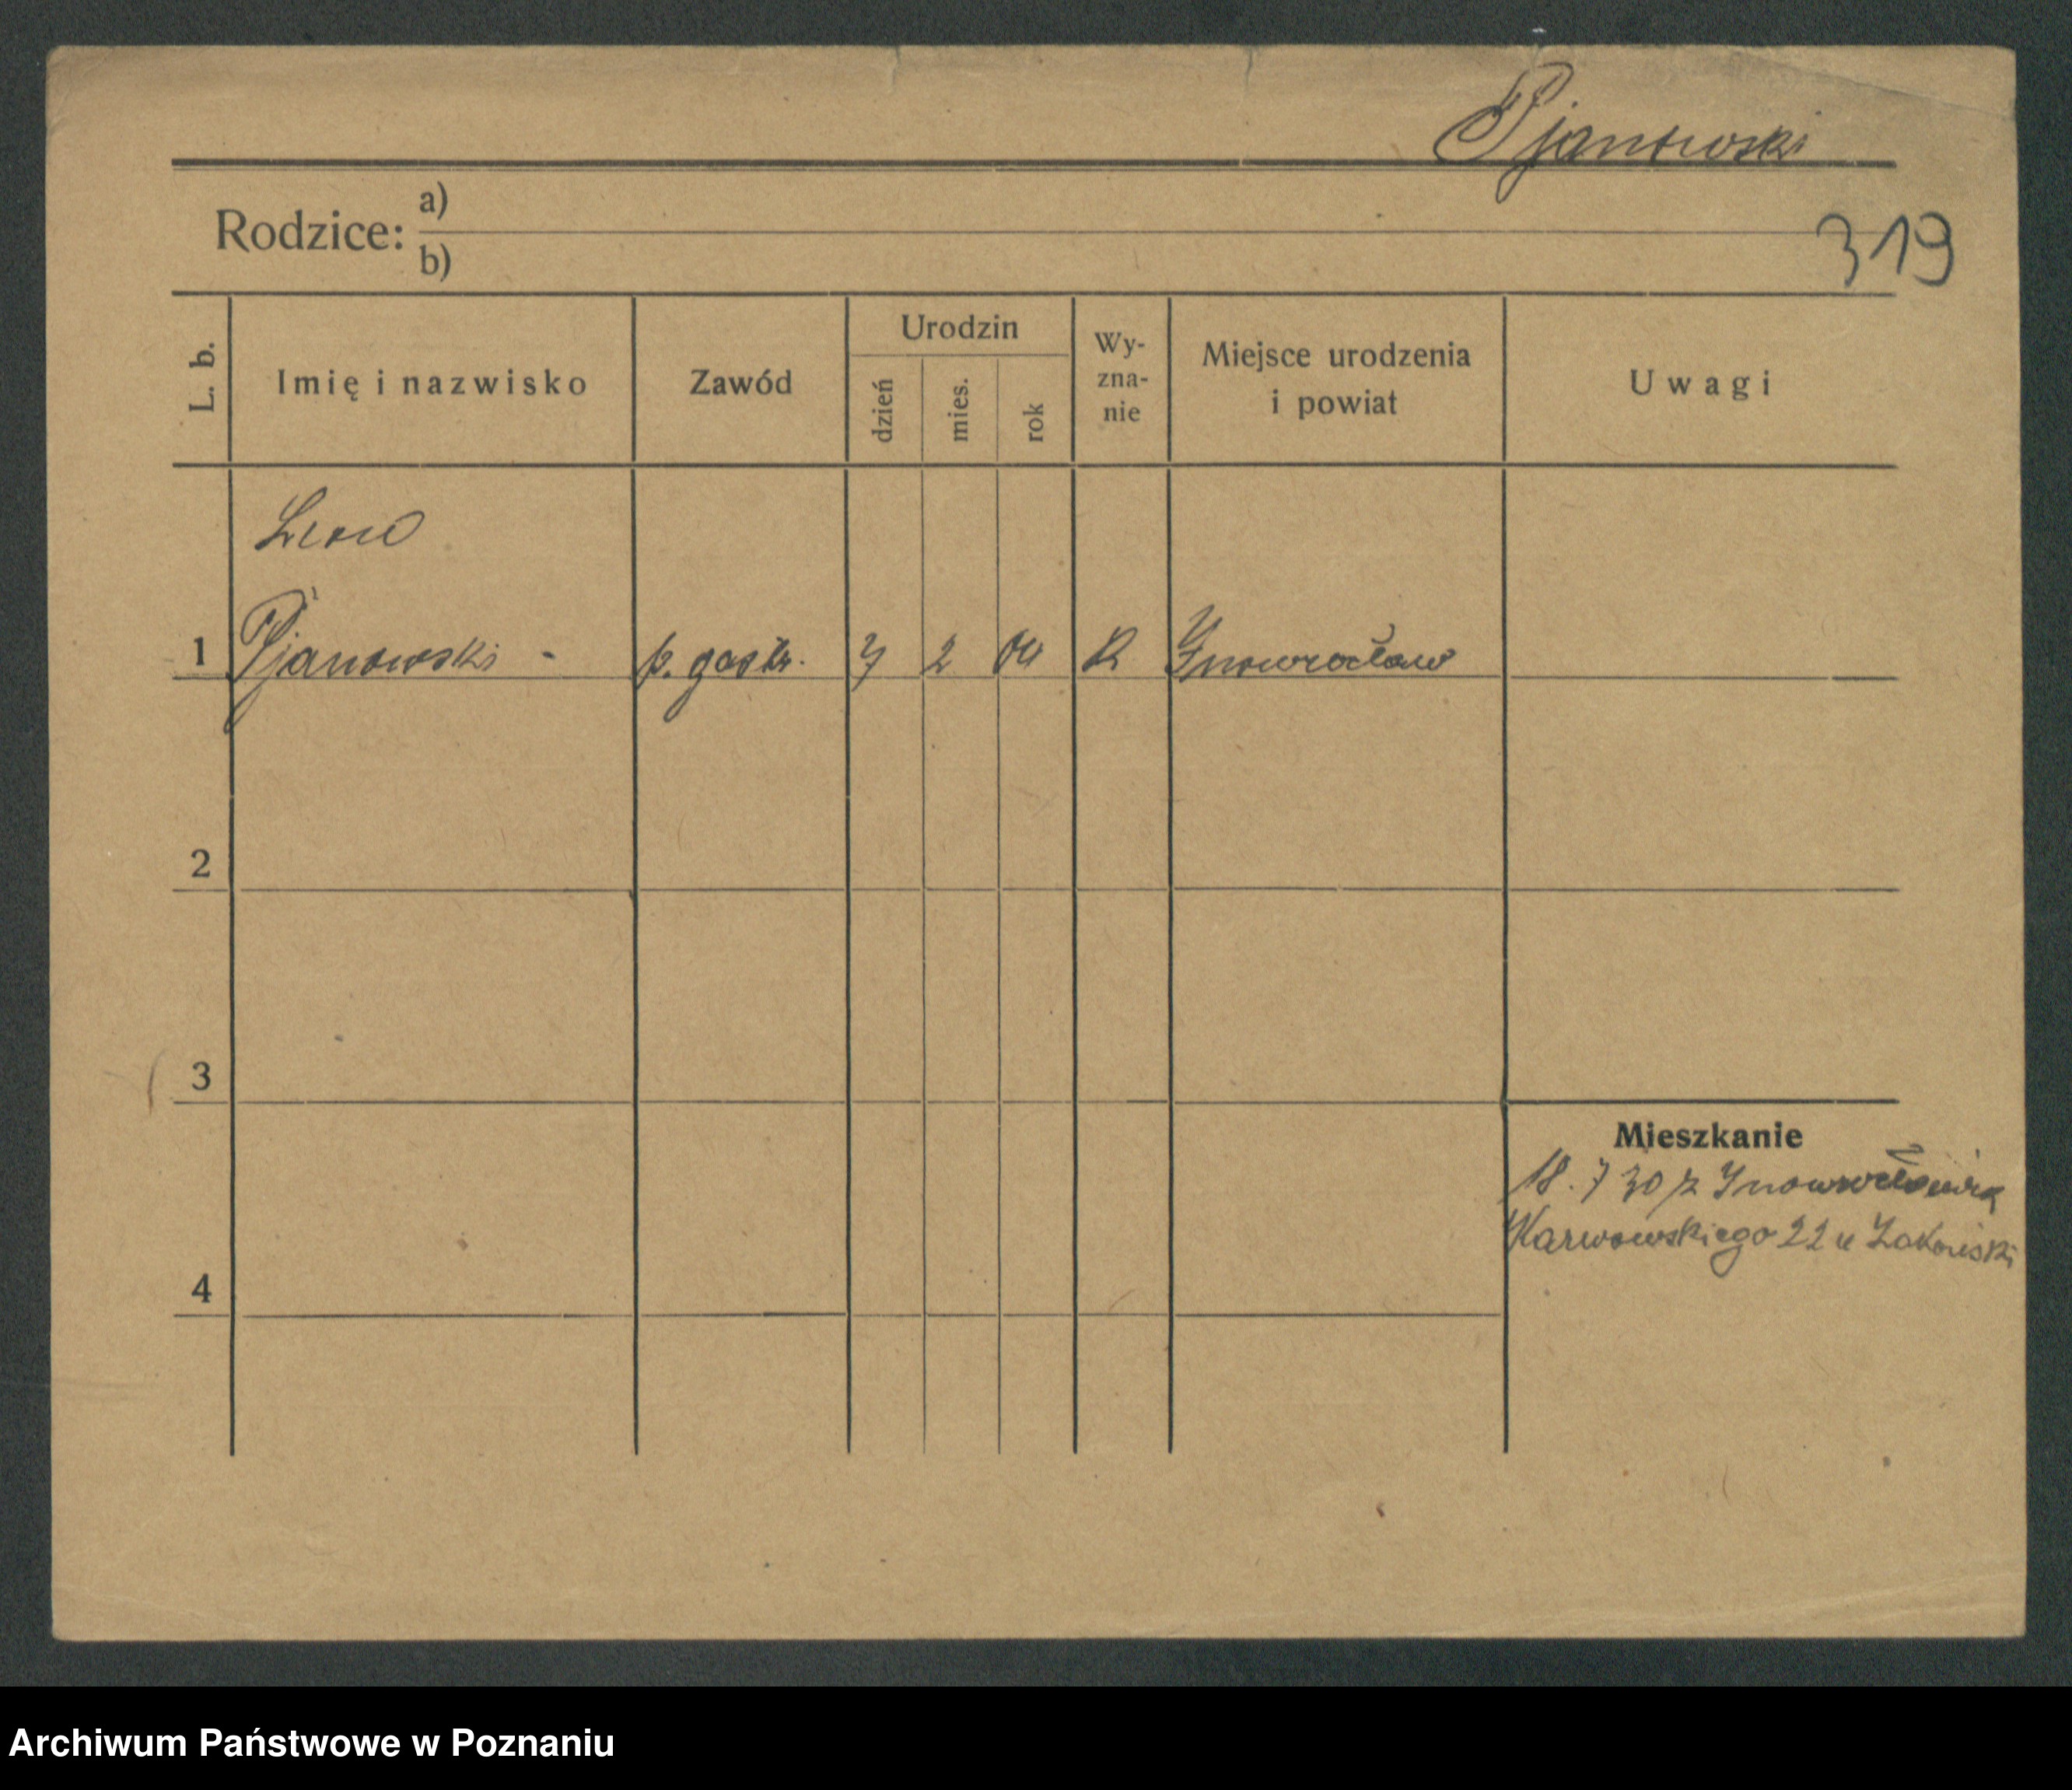 Pjanowski
Rodzice: a)
b)
319
L. b.
Imię i nazwisko
Zawód
Urodzin
dzień
mies.
rok
Wy-
zna-
nie
Miejsce urodzenia
i powiat
Uwagi
Leon
1 Pjanowski - p. gastr. 7 2 04 R Inowrocław
2
3
Mieszkanie
18. 7 30 z Inowrocławia
Karwowskiego 22 u
4
Archiwum Państwowe w Poznaniu